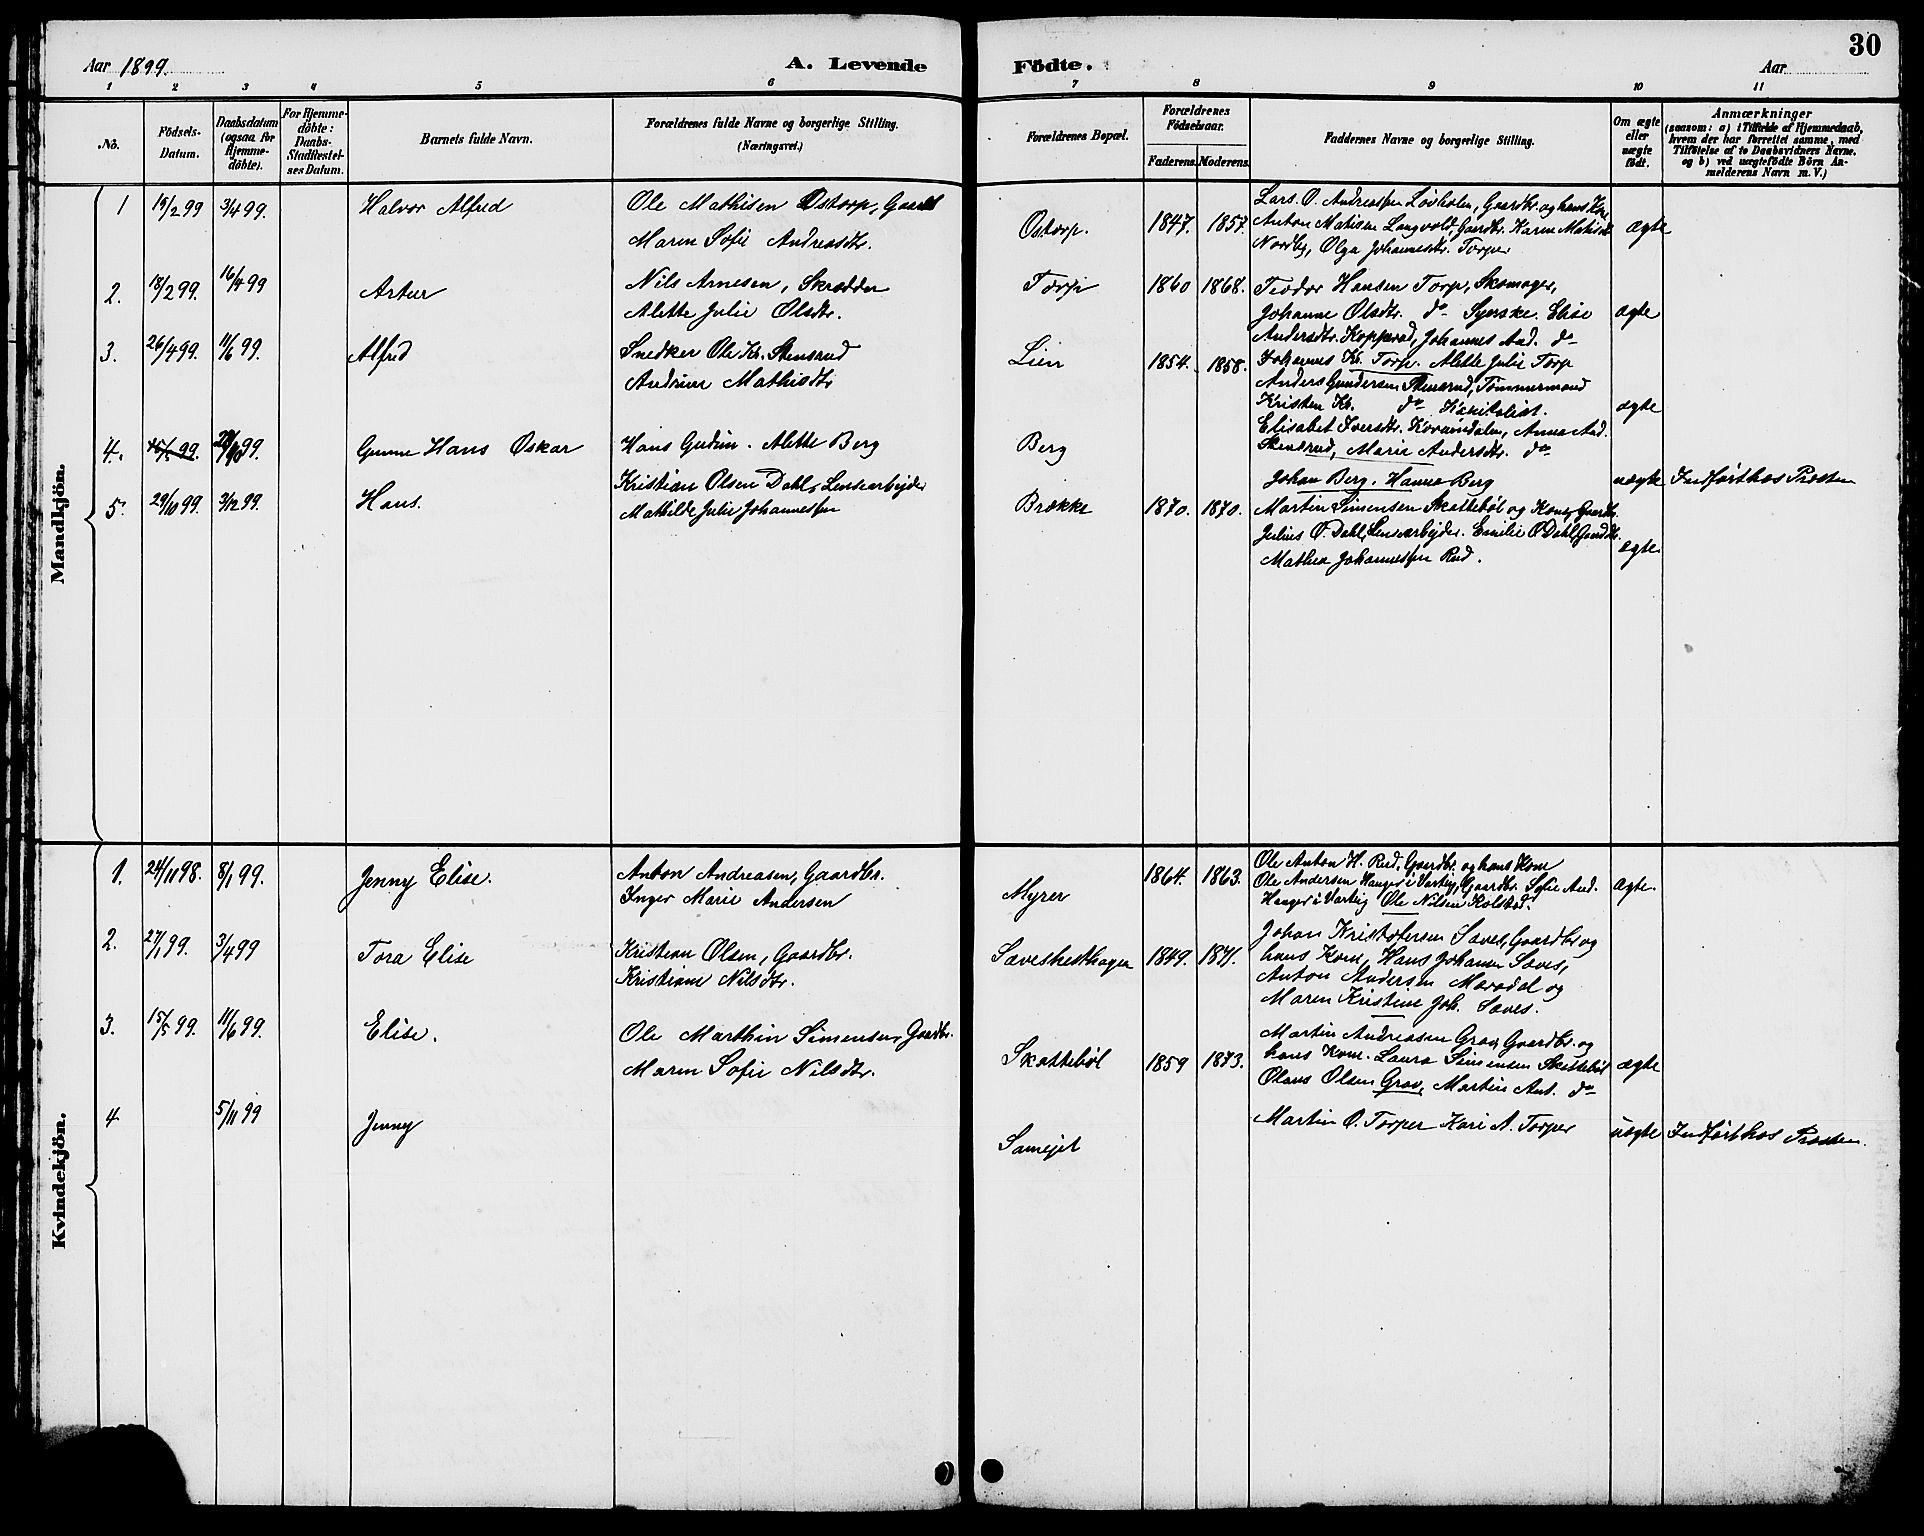 Aar 1899.
A. Levende
Födte.
Aar
30
1 2 3 4 5 6 7 8 9 10 11
No.
Födsels-Datum.
Daabsdatum (ogsaa for Hjemme-döbte).
For Hjemme-döbte: Daabs-Stadfæstel-ses Datum.
Barnets fulde Navn.
Forældrenes fulde Navne og borgerlige Stilling.
(Næringsvei.)
Forældrenes Bopæl.
Forældrenes Födselsaar.
Faderens. Moderens.
Faddernes Navne og borgerlige Stilling.
Om ægte eller uægte födt.
Anmærkninger
(saasom: a) i Tilfælde af Hjemmedaab,
hvem der har forrettet samme, med
Tilföielse af to Daabsvidners Navne.
og b) ved uægtefödte Börn An-
melderens Navn m. V.)
Mandkjön.
1 19/2 99 3/4 99. Halvor Alfred
Ole Mathisen Ostorp, Gaardb
Maren Sofie Andreasdtr.
Ostorp. 1847. 1857.
Lars. O. Andreassen Lövholm, Gaardbr. og hans Kone
Anton Matisen Langvold, Gaardbr. Karen Matisdt
Nordby, Olga Johannesdtr. Torper
ægte
2. 18/2 99. 16/4 99 Artur
Nils Arnesen, Skrædder
Alette Julie Olsdtr.
Torp 1860 1868.
Teodor Hansen Torp, Skomager,
Johanne Olsdtr. do Syerske. Elise
Andersdtr. Kopperød, Johannes And. do
Johannes Kr. Torp. Alette Julie Torp
ægte
3. 26/4 99. 11/6 99. Alfred
Snedker Ole Kr. Stensrud
Andrine Mathisdtr
Lien 1854. 1858.
Anders Gundersen Stensrud, Tømmermand
Kristen Kr. do Kapitalist.
Elisabet Iversdtr. , Anna And.
Stensrud, Marie Andersdtr. do
ægte
4. 15/5 99. 99. Gunne Hans Oskar
Hans . Alette Berg
Berg
Johan Berg. Hanna Berg
uægte Indført hos Præsten
5. 29/10 99. 3/12 99. Hans.
Kristian Olsen Dahl, Lensearbejder
Mathilde Julie Johannessen
Brække 1870. 1870.
Martin Simensen Skattebøl og Kone, Gaardbr.
Julius O. Dahl, Lensearbejder. Emilie O Dahl,
Mathea Johannessen Rud.
ægte
Kvindekjön.
1. 24/11 98. 8/1 99. Jenny Elise.
Anton Andreasen, Gaardbr.
Inger Marie Andersen
Myrer 1864. 1863.
Ole Anton H. Rud, Gaardbr. og hans Kone
Ole Andersen Hauger i Varteig, Gaardbr. Sofie And.
Hauger i Varteig Ole Nilsen Kolstad.
ægte.
2. 27/1 99. 3/4 99 Tora Elise
Kristian Olsen, Gaardbr.
Kristiane Nilsdtr.
Saveshesthagen 1849. 1871.
Johan Kristofersen Saves, Gaardbr og
hans Kone, Hans Johansen Saves,
Anton Andersen Mørødal og
Maren Kristine Joh. Saves.
3. 15/5 99. 11/6 99. Elise.
Ole Marthin Simensen, Gaardbr.
Maren Sofie Nilsdtr.
Skattebøl 1859 1873.
Martin Andreasen Grav, Gaardbr. og
hans Kone. Laura Simensen Skattebøl
Olaus Olsen Grav, Martin Ant. do
ægte
4 5/11 99 Jenny
Samejet
Martin O. Torper Kari A. Torper
uægte Indført hos Præsten.